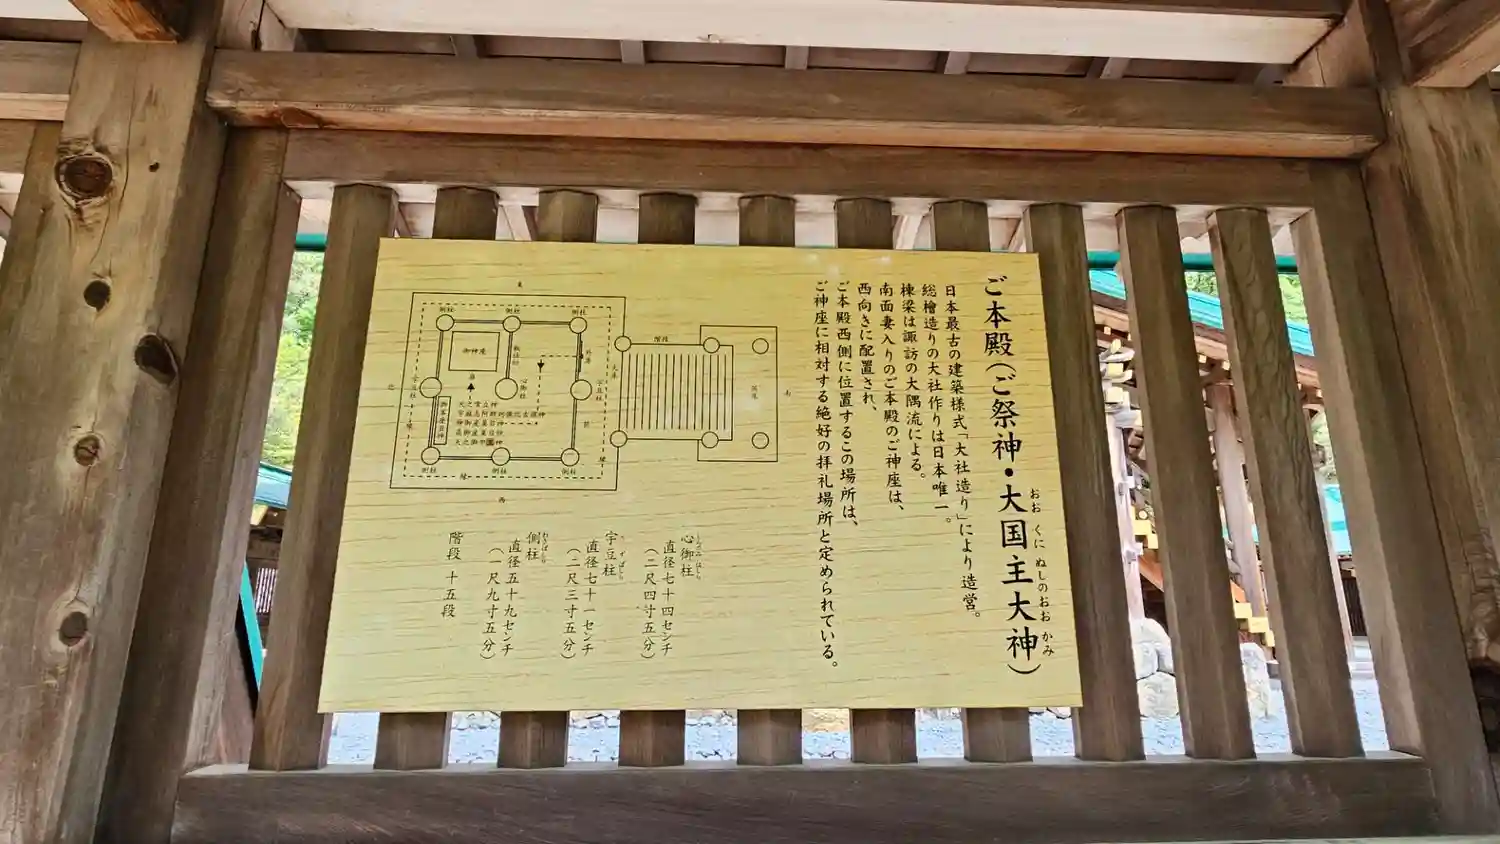 ご本殿(ご祭神・大国主大神)
おお くに ぬしの おお かみ
日本最古の建築様式「大社造り」により造営。
総檜造りの大社作りは日本唯一。
棟梁は諏訪の大隅流による。
南面妻入りのご本殿のご神座は、
西向きに配置され、
ご本殿西側に位置するこの場所は、
ご神座に相対する絶好の拝礼場所と定められている。
心御柱
直径七十四センチ
(二尺四寸五分)
宇豆柱
うずばしら
直径七十一センチ
(二尺三寸五分)
側柱
がわばしら
直径五十九センチ
(一尺九寸五分)
階段 十五段
側柱
側柱
側柱
御神座
扉
心御柱
宇豆柱
宇豆柱
天之常立神
神御産巣日神
高御産巣日神
側柱
側柱
側柱
縁
縁
階段
南
西